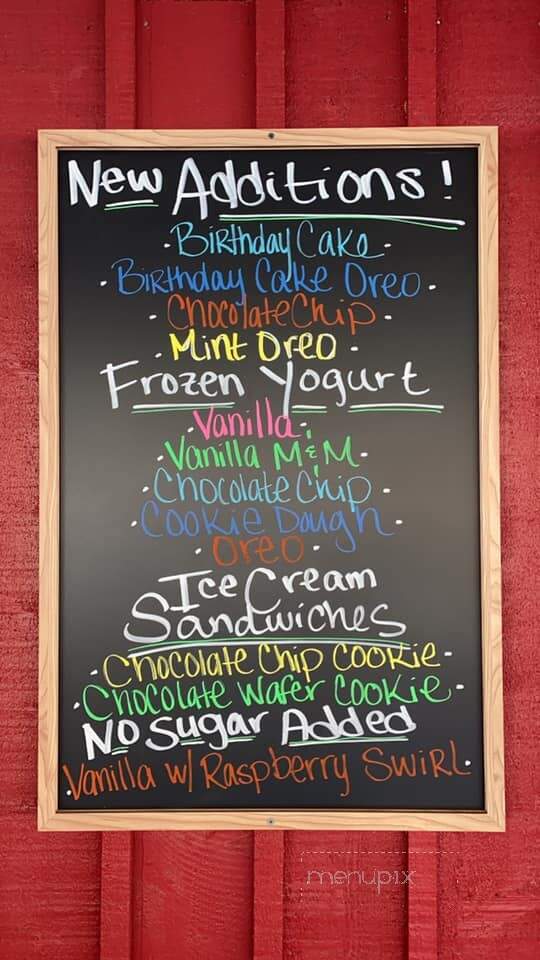 New Additions!
Birthday Cake
Birthday Cake Oreo
Chocolate Chip
Mint Oreo
Frozen Yogurt
Vanilla
Vanilla M&M
Chocolate Chip
Cookie Dough
Oreo
Ice Cream
Sandwiches
Chocolate Chip Cookie
Chocolate Wafer Cookie
No Sugar Added
Vanilla w/ Raspberry Swirl
menupix